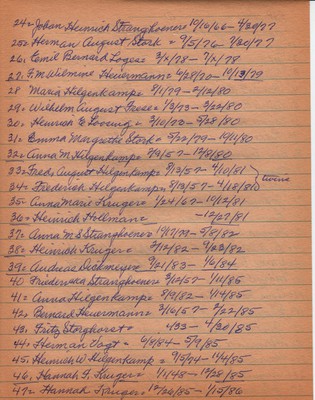 24= Johan Heinrich Stranghoener= 10/16/66 - 4/20/77
25= Herman August Stork = 7/5/76 - 7/20/77
26= Emil Bernard Logese = 3/2/78 - 7/2/78
27= F.W. Wilmine Heuermann= 6/28/70 - 10/13/79
28 Maria Hilgenkamp= 8/1/79 - 2/12/80
29= Wilhelm August Frese= 1/3/73 - 3/22/80
30= Heinrich G = 3/10/72 - 5/28/80
31= Emma Margrethe Stork= 5/22/79 - 10/1/80
32= Anna M Hilgenkamp= 8/9/57 - 12/8/80
33= Fred August Hilgenkamp= 9/12/57 - 4/10/81
34= Frederich Hilgenkamp= 9/12/57 - 4/18/81 twins
35= Anna Marie Kruger= 1/24/67 - 10/12/81
36= Heinrich Hollman= - 12/27/81
37= Anna M.S Stranghoener= 10/17/79 - 5/8/82
38= Heinrich Kruger= 2/12/82 - 4/23/82
39= Andreae Dickmeyer= 9/21/83 - 1/6/84
40 Friederecka Stranghoener= 3/12/57 - 1/11/85
41= Anna Hilgenkamp= 8/9/82 - 1/14/85
42= Bernard Heuermann= 3/16/57 - 2/22/85
43= Fritz Storghorst= 1/33 - 4/20/85
44= Herman Vogt = 6/4/84 - 5/9/85
45= Heinrich W Hilgenkamp= 9/15/74 - 11/24/85
46= Hannah F. Kruger= 1/1/48 - 12/28/85
47= Hannah Kruger= 12/26/85 - 1/15/86